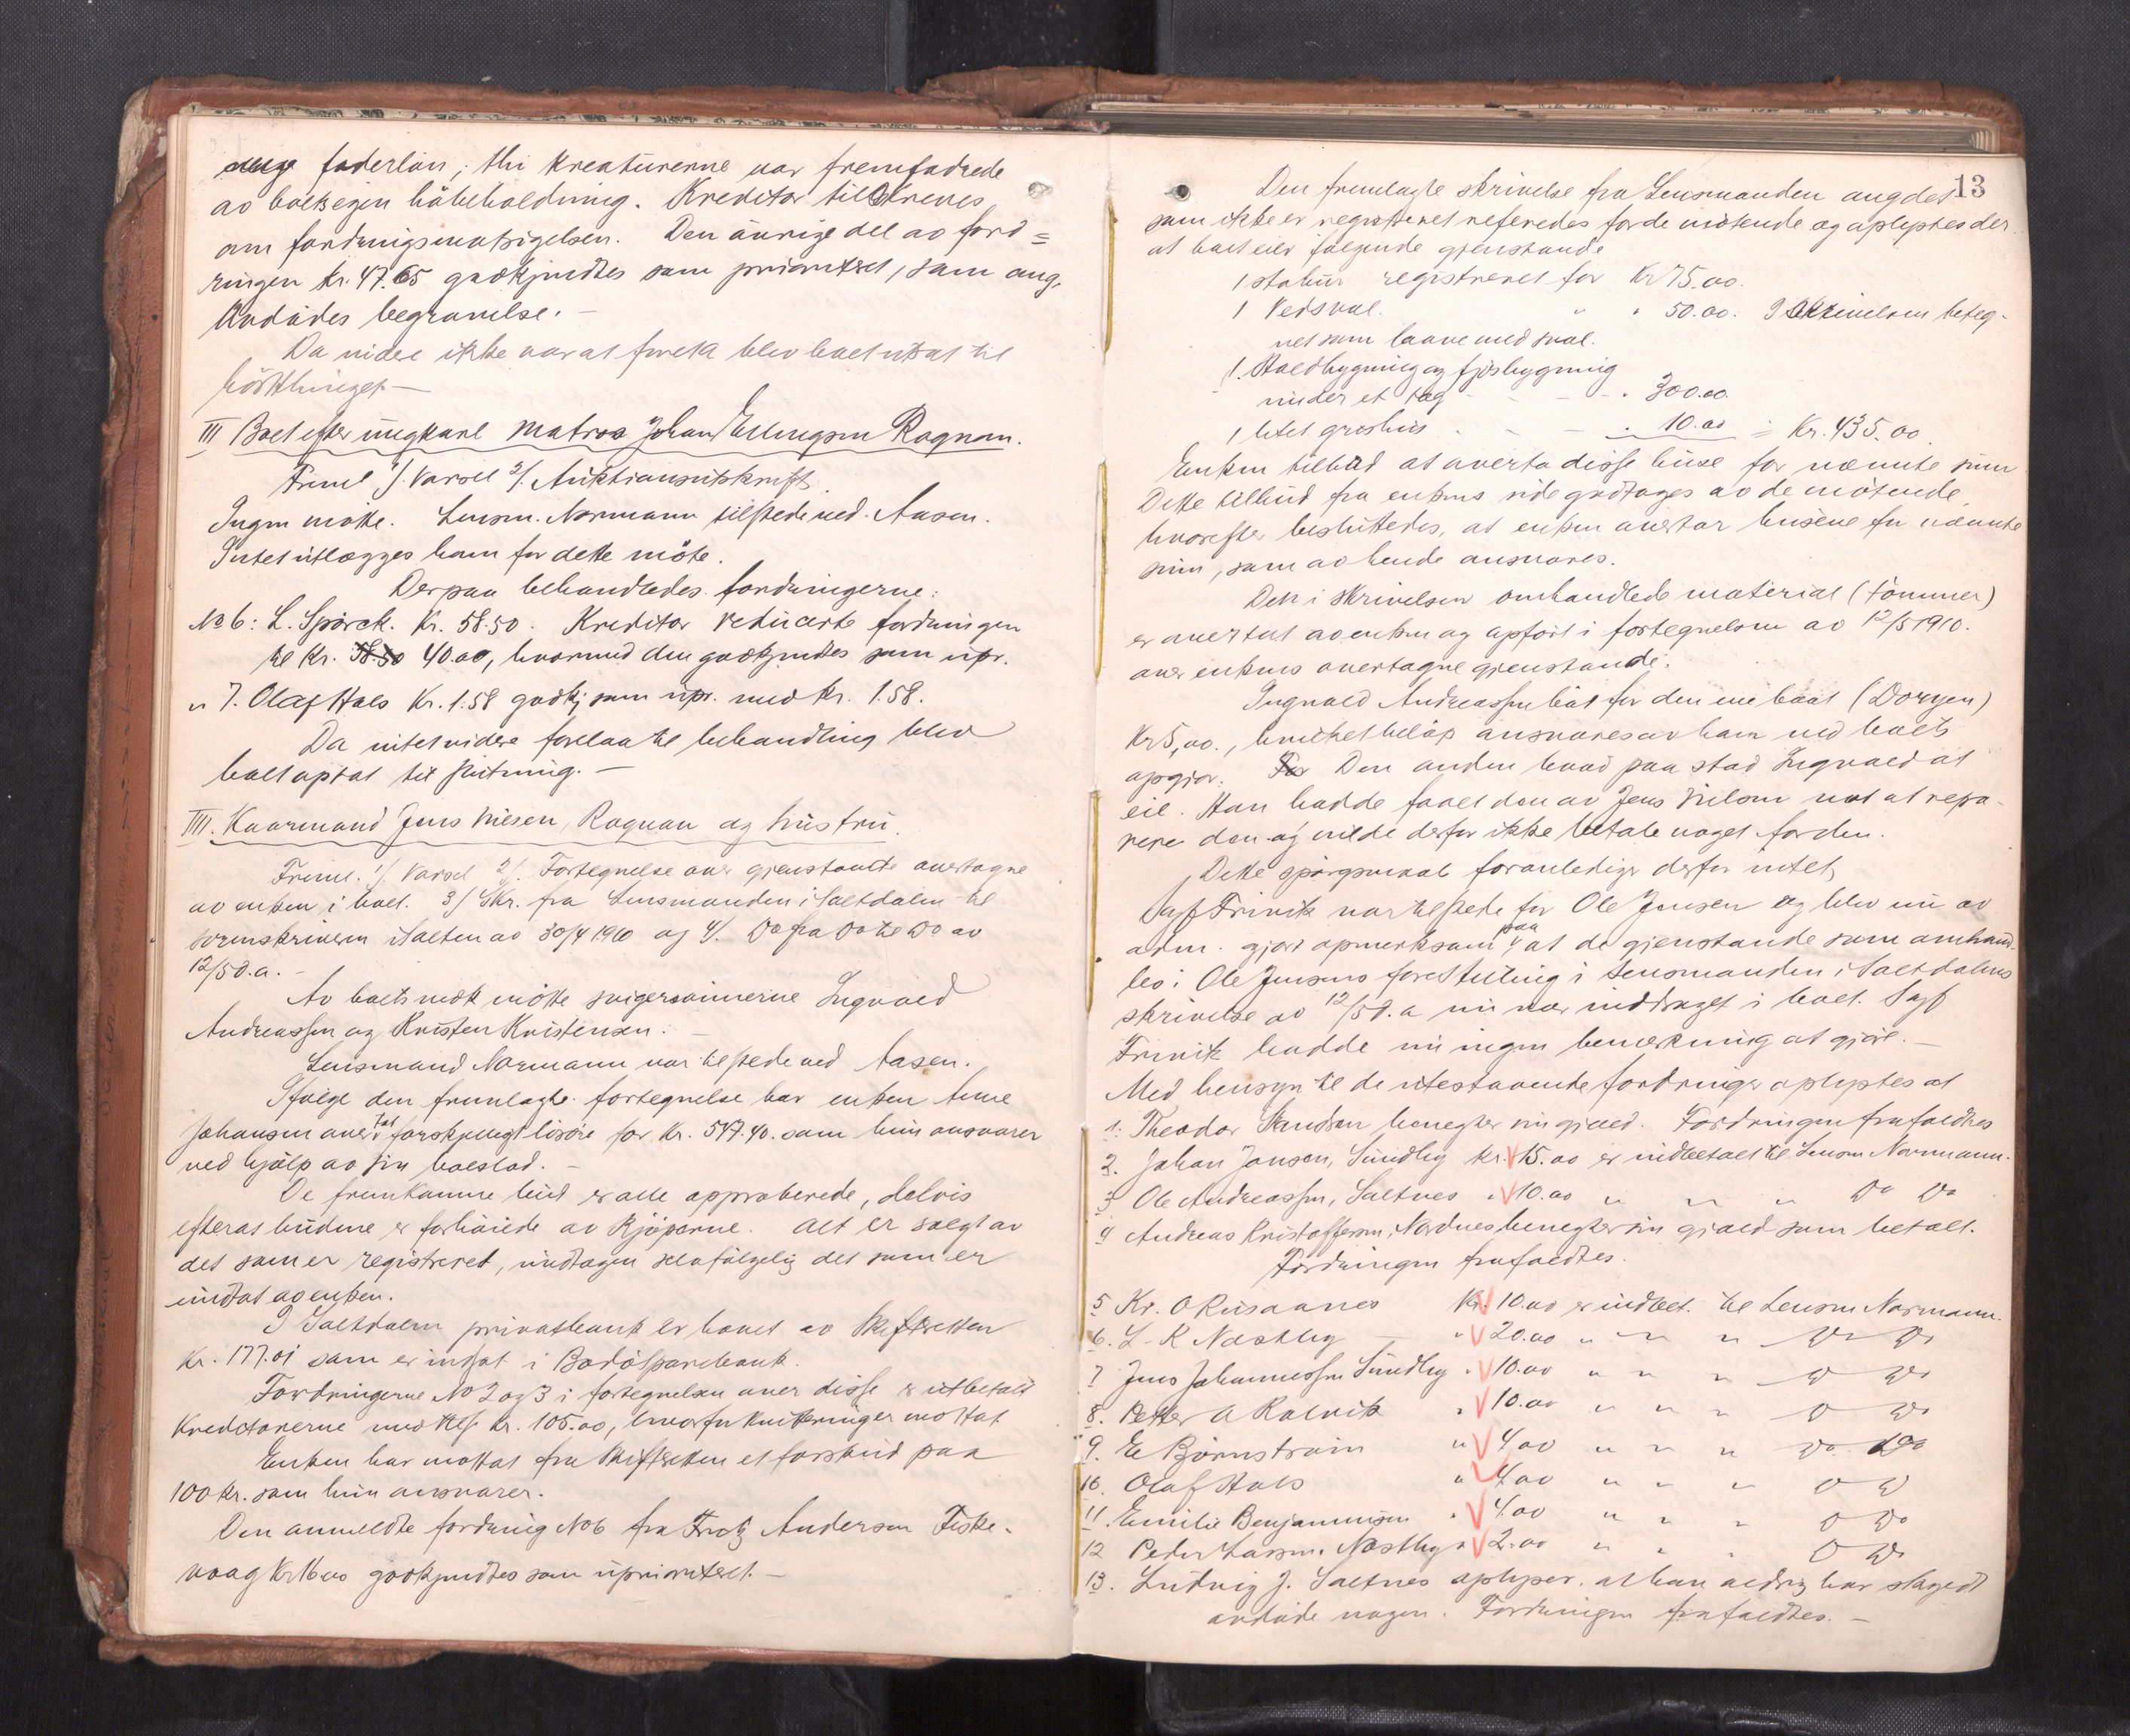 foderløn; thi kreaturerne var fremfodrede
av boets egen høbeholdning. Kreditor tilskrives
om fordringsmotsigelsen. Den øvrige del av ford=
ringen kr. 47.65 godkjendtes som prioritert, som ang.
avdødes begravelse. -
Da videre ikke var at foreta blev boet utsat til
høsttinget. -
III Boet efter ungkarl matros Johan Erlingsen Rognan.
Freml 1/. Varsel 2/. Auktionsutskrift.
Ingen møtte. Lensm. Normann tilstede ved Aasen.
Intet utlægges ham for dette møte.
Derpaa behandledes fordringerne:
No 6: L. Spørck. Kr. 58.50. Kreditor reducerte fordringen
til kr. 58.50 40.00, hvormed den godkjendtes som upr.
" 7. Olaf Hals Kr. 1.58 godkj som upr. med kr. 1.58.
Da intet videre forelaa til behandling blev
boet optat til slutning. -
IIII. Kaarmand Jens Nilsen, Rognan og hustru.
Freml. 1/. Varsel 2/. Fortegnelse over gjenstande overtagne
av enken i boet. 3/ Skr. fra Lensmanden i Saltdalen til
sorenskriveren i Salten av 30/4 1910 og 4/. Do fra Do til Do av
12/5 d.a. -
Av boets vedk møtte svigersønnerne Ingvald
Andreassen og Kristen Kristensen. -
Lensmand Normann var tilstede ved Aasen.
Ifølge den fremlagte fortegnelse har enken Anne
Johansen overtat forskjelligt løsøre for Kr. 517.40. som hun ansvarer
ved hjælp av sin boeslod. -
De fremkomne bud er alle approberede, delvis
efterat budene er forhøiede av kjøperne. Alt er solgt av
det som er registreret, undtagen selvfølgelig det som er
undtat av enken.
I Saltdalen privatbank er hævet av skifteretten
Kr. 177.01 som er indsat i Bodø Sparebank.
Fordringerne No 2 og 3 i fortegnelsen over disse er utbetalt
kreditorerne med tils. kr. 105.00, hvorfor kvitteringer mottat
Enken har mottat fra skifteretten et forskud paa
100 kr. som hun ansvarer.
Den anmeldte fordring No 6 fra Andersen Fiske-
vaag Kr 16.00 godkjendtes som uprioritert. -
13
Den fremlagte skrivelse fra Lensmanden ang det
som ikke er registreret refereredes for de møtende og oplystes der
at boet eier følgende gjenstande
1 stabur registreret for Kr 75.00.
1 Vedsval. " " 50.00. I skrivelsen beteg-
net som laave med sval.
1. Staldbygning og fjøsbygning
under et tag - - - " 300.00.
1 litet grishus . - - . 10.00 = Kr. 435.00.
Enken tilbød at overta disse huse for nævnte sum
Dette tilbud fra enkens side godtages av de møtende,
hvorefter besluttedes, at enken overtar husene for nævnte
sum, som av hende ansvares.
Den i skrivelsen omhandlede material (tømmer)
er overtat av enken og opført i fortegnelsen av 12/5 1910.
over enkens overtagne gjenstande.
Ingvald Andreassen bøt for den ene baat (Doryen)
Kr 5,00., hvilket beløp ansvares av ham ved boets
opgjør. For Den anden baad paa stod Ingvald at
eie. Han hadde faaet den av Jens Nilsen mot at repa-
rere den og vilde derfor ikke betale noget for den.
Dette spørgsmaal foranlediger derfor intet,
Sagf Trivik var tilstede for Ole Jensen og blev nu av
adm. gjort opmerksom paa at de gjenstande som omhand-
les i Ole Jensens forestilling i Lensmanden i Saltdalens
skrivelse av 12/5 d.a nu var inddraget i boet. Sagf
Trivik hadde nu ingen bemerkning at gjøre. -
Med hensyn til de utestaaende fordringer oplystes at
1: Theodor benegter sin gjæld. Fordringen frafaldtes
2. Johan Jensen, Sundby kr. 15.00 er indbetalt til Lensm Normann.
3 Ole Andreassen, Saltnes " 10.00 " " " Do Do
4 Andreas Kristoffersen, Nordnes benegter sin gjæld som betalt.
Fordringen frafaldtes.
5 Kr. O Rusaanes Kr. 10.00 er indbet. til Lensm Normann.
6. L. K Næstby " 20.00 " " " Do Do
7 Jens Johannessen Sundby " 10.00 " " " Do Do
8. Petter A Rolvik " 10.00 " " " Do Do
9. E Bjørnstrøm " 4.00 " " " Do Do
10. Olaf Hals " 4.00 " " " Do Do
11. Emilie Benjaminsen " 4.00 " " " Do Do
12 Peder Larsen Næstby " 2.00 " " " Do Do
13. Ludvig J. Saltnes oplyser. at han aldrig har skyldt
avdøde nogen. Fordringen frafaldtes. -